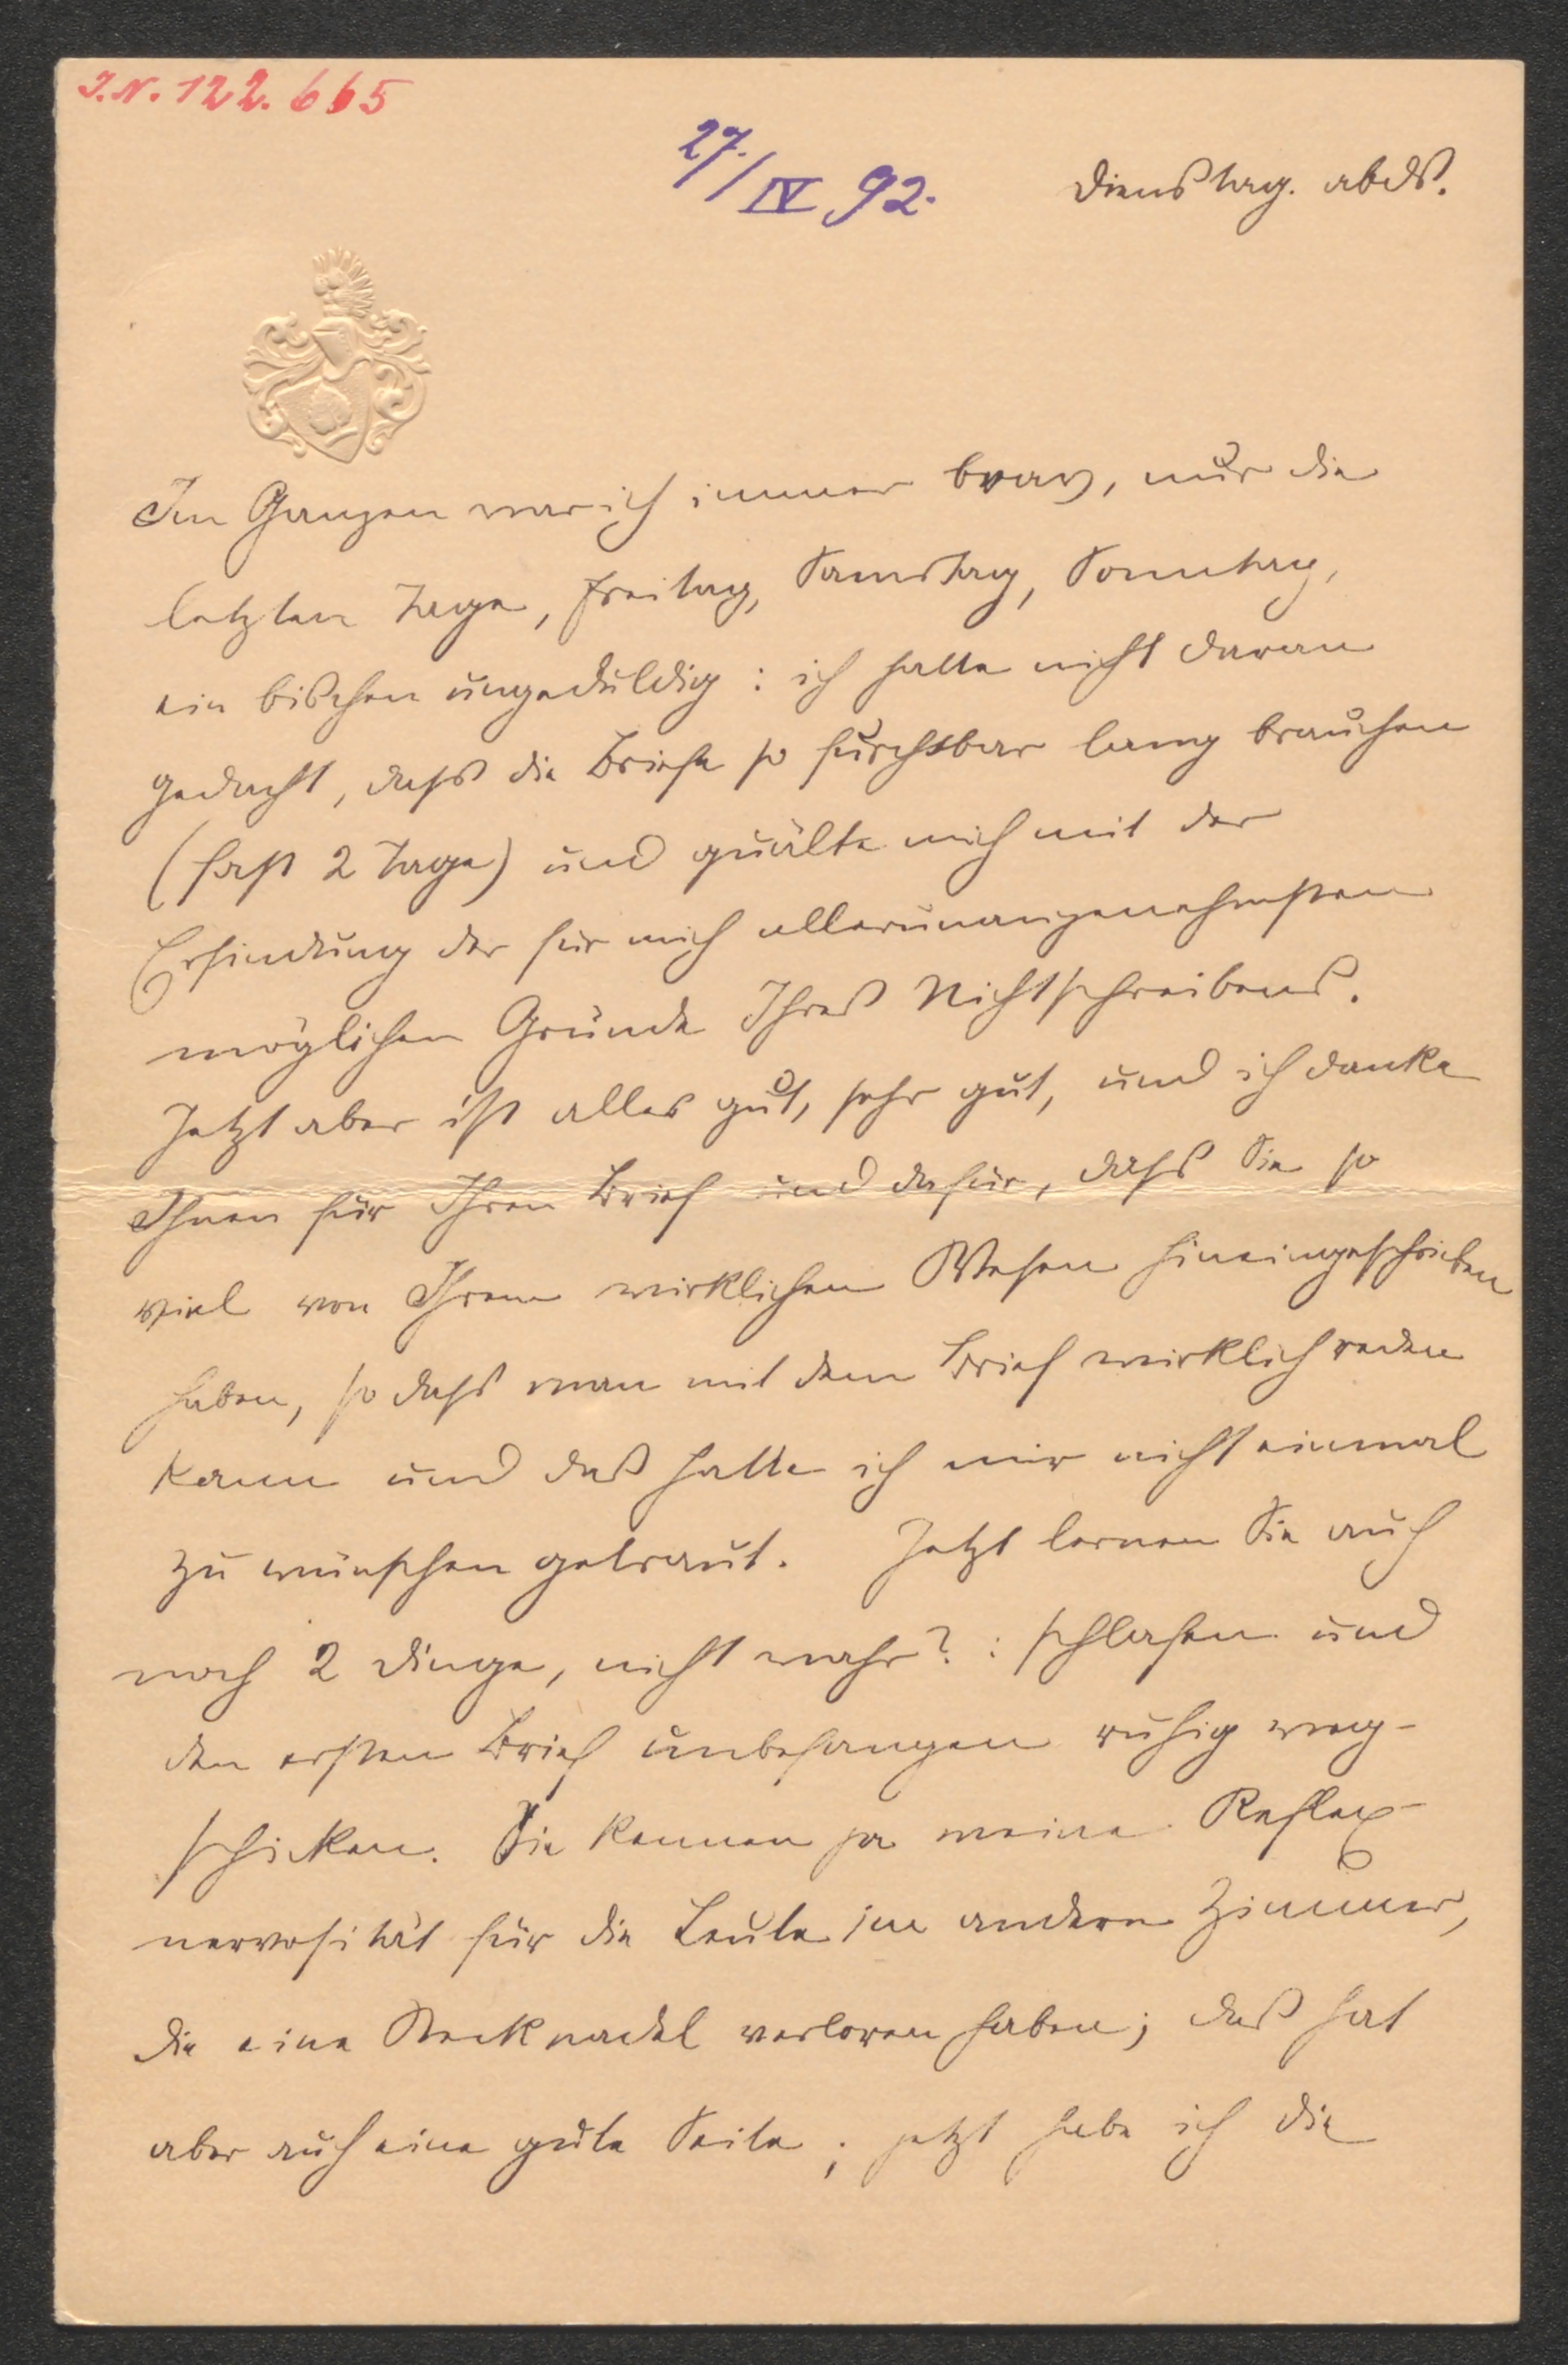 J.N. 122.665
27./IV 92.
Dienstag. abds.
Im Ganzen war ich immer brav, nur die
letzten Tage, Freitag, Samstag, Sonntag,
ein bischen ungeduldig: ich hatte nicht daran
gedacht, dass die Briefe so furchtbar lang brauchen
(fast 2 Tage) und quälte mich mit der
Erfindung der für mich allerunangenehmsten
möglichen Gründe Ihres Nichtschreibens.
Jetzt aber ist alles gut, sehr gut, und ich danke
Ihnen für Ihren Brief und dafür, dass Sie so
viel von Ihrem wirklichen Wesen hineingeschrieben
haben, so dass man mit dem Brief wirklich reden
kann und das hatte ich mir nicht einmal
zu wünschen getraut. Jetzt lernen Sie auch
noch 2 Dinge, nicht wahr?: schlafen und
den ersten Brief unbefangen ruhig weg-
schicken. Sie kennen ja meine Reflex-
nervosität für die Leute im andern Zimmer,
die eine Stecknadel verloren haben; das hat
aber auch eine gute Seite; jetzt habe ich die